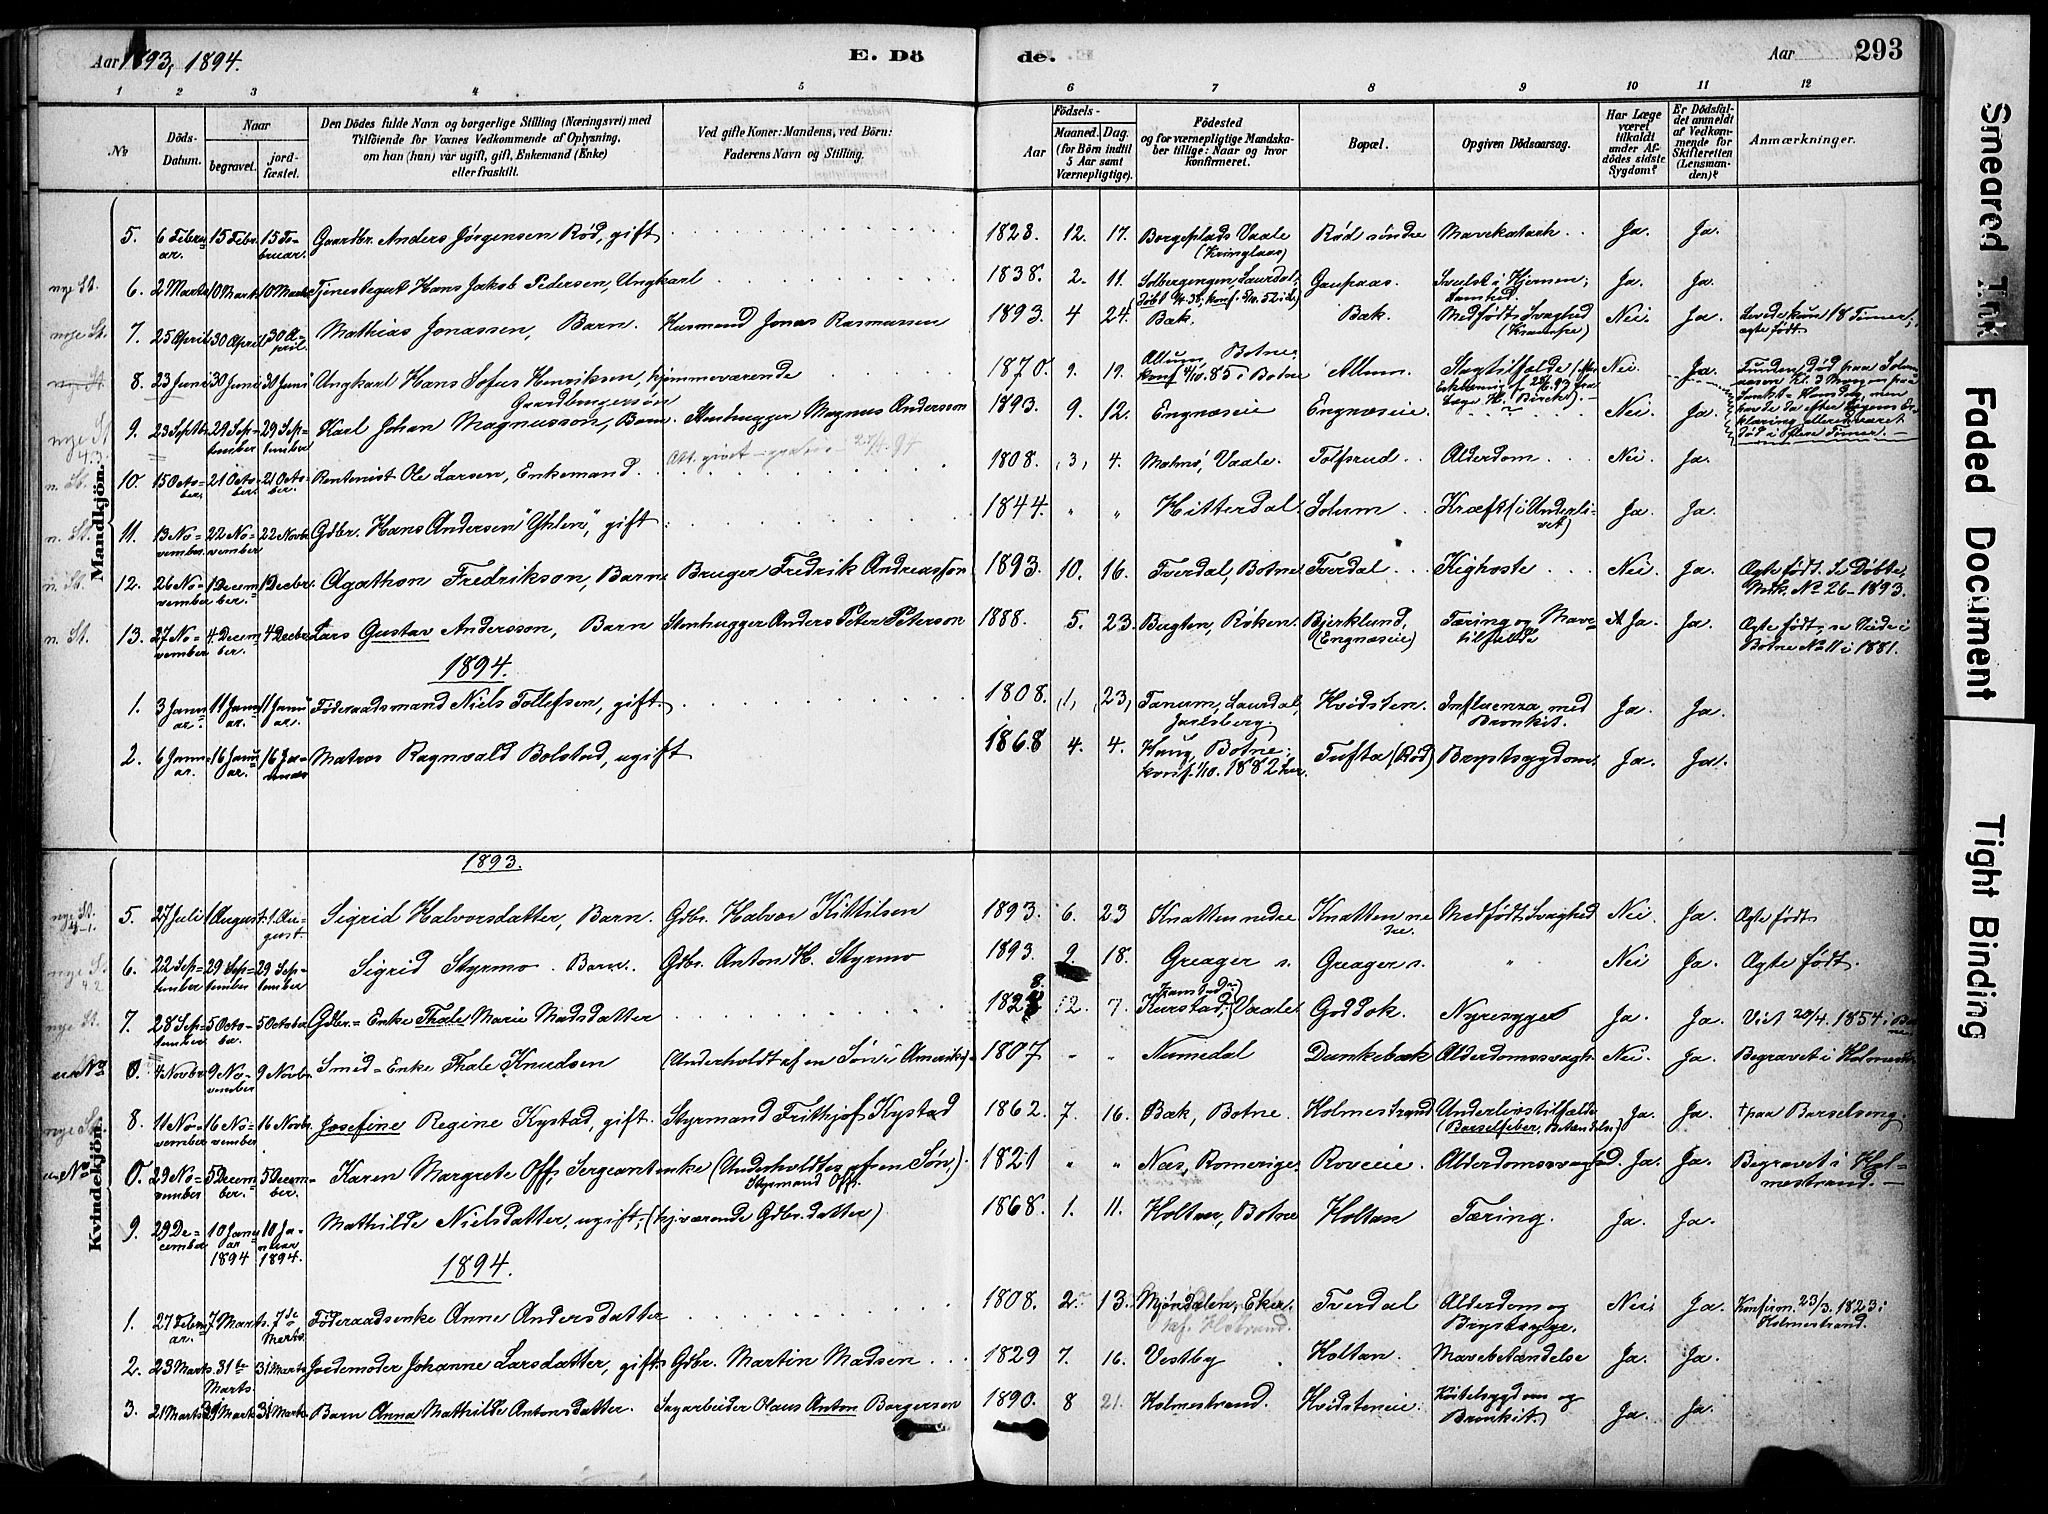 Aar 1893, 1894.
E. Dö
de.
Aar
293
1 2 3 4 5 6 7 8 9 10 11 12
No
Döds-Datum.
Naar
begravet.
jord-fæstet.
Den Dödes fulde Navn og borgerlige Stilling (Næringsvei) med
Tilföiende for Voxnes Vedkommende af Oplysning,
om han (hun) var ugift, gift, Enkemand (Enke)
eller fraskilt.
Ved gifte Koner: Mandens, ved Börn:
Faderens Navn og Stilling.
Födsels-
Aar
Maaned. Dag.
(for Börn indtil
5 Aar samt
Værnepligtige).
Födested
og for værnepligtige Mandska-
ber tillige: Naar og hvor
konfirmeret.
Bopæl.
Opgiven Dödsaarsag.
Har Læge
været
tilkaldt
under Af-
dödes sidste
Sygdom?
Er Dödsfal-
det anmeldt
af Vedkom-
mende for
Skifteretten
(Lensman-
den)?
Anmærkninger.
Mandkjön.
5. 6 Februar. 15 Febr. 15 Februar. Gaardbr. Anders Jörgensen Rød, gift 1828. 12. 17. Borgeplads Vaale (Kringlaas) Rød søndre Mavekatarh Ja. Ja.
nye St. 6. 2 Marts 10 Marts 10 Marts Tjenestegut Hans Jakob Pedersen, Ungkarl 1838. 2. 11. Solbergengen, Laurdal, Gaupaas. Svulst i Hjernen, Ja. Ja.
nye St. 7. 25 April 30 April 30 April. Mathias Jonassen, Barn. Husmand Jonas Rasmussen 1893. 4 24. Bæk. Bæk. Medfødt Svaghed (Krampe) Nei. Ja. Levede kun 18 Timer, ægte født
8. 23 Juni 30 Juni 30 Juni Ungkarl Hans Sofus Henriksen, hjemmeværende Gaardbrugersøn 1870. 9. 19. Allum, Botne. konf. 4/10. 85 i Botne Allum. Slagtilfælde Nei. Ja. Funden død paa
9. 23 Septbr. 29 September 29 September Karl Johan Magnusson, Barn. Stenhugger Magnus Andersson 1893. 9. 12. Engnæseie Engnæseie. " Nei. Ja.
n. St. 10. 15 October. 21 October. 21 October. Rentenist Ole Larsen, Enkemand. 1808. 3, 4. Malmö, Vaale. Tolfsrud. Alderdom. Nei. Ja.
n. St. 11. 13 November. 22 November 22 Novbr. Gdbr. Hans Andersen "Yhlen", gift 1844. " " Hitterdal. Solum. Kræft (i Underlivet) Ja. Ja.
n. St. 12. 26 November 1 December. 1 Decbr. Agathon Fredrikson, Barn Bruger Fredrik Andreasson 1893. 10. 16. Tverdal, Botne Tverdal Kighoste Nei. Ja. Ægte født. Se Døbte, Mk. No 26 - 1893.
n. St. 13. 27 November 4 December. 4 Decbr. Lars Gustav Andersson, Barn Stenhugger Anders Peter Peterson 1888. 5. 23. Bugten, Røken. Bjerklund, (Engnæseie) Tæring og Mavetilfælde Ja. Ja. Ægte født, se Viede i Botne No 11 i 1881.
1894.
1. 3 Januar. 11 Januar. 11 Januar. Føderaadsmand Niels Tollefsen, gift 1808. 1, 23, Fanum, Laurdal, Jarlsberg. Kvidsten. Influenza med Bronkit. Ja. Ja.
2. 6 Januar. 16 Januar. 16 Januar Matros Ragnvald Bolstad, ugift 1868 4. 4. Haug, Botne; konf. 1/10. 1882 her. Tufta (Rød) Brystsygdom. Ja. Ja.
Kvindekjön.
1893.
nye St. 5. 27 Juli 1 August. 1 August. Sigrid Halvorsdatter, Barn. Gdbr. Halvor Kittilsen 1893. 6. 23 Knatten nedre Knatten nedre. Medfødt Svaghed Nei. Ja. Ægte født
nye St. 6. 22 September 29 September 29 September Sigrid Styrmo. Barn. Gdbr. Anton H. Styrmo 1893. 9. 18. Greager s. Greager s. " Nei Ja. Ægte født.
nye St. 7. 28 September 5 October. 5 October Gdbr.-Enke Thale Marie Madsdatter 12. 7. Kurstad, Vaale Godsok. Nyresyge Ja. Ja. Viet 20/4. 1854 i Botne
0. 4 Novbr. 9 November 9 Novbr. Smed-Enke Thale Knudsen (Underholdt af en Søn i Amerika) 1807 " " Numedal Dunkebæk Alderdomssvagh. Nei. Ja. Begravet i Holmestr.
nye St. 8. 11 November 16 November 16 Novbr. Josefine Regine Kystad, gift. Styrmand Frithjof Kystad 1862. 7. 16. Bæk, Botne. Holmestrand Underlivstilfælde (Barselfeber, Betændelse) Ja. Ja. † paa Barselseng.
0. 29 November 5 December. 5 December. Karen Margrete Off, Sergeantenke (Underholdtes af en Søn, Styrmand Off.) 1821 " " Næs, Romerige. Roveie. Alderdomssvaghed. Ja. Ja. Begravet i Holmestrand.
9. 29 December 10 Januar 1894 10 Januar 1894. Mathilde Nielsdatter, ugift, (hjværende Gdbr.datter) 1868. 1. 11. Holtan, Botne Holtan Tæring. Ja. Ja.
1894.
1. 27 Februar. 7 Marts. 7de Marts. Føderaadsenke Anne Andersdatter 1808. 2. 13. Mjøndalen, Eker. Tverdal Alderdom og Brystsyge. Nei. Ja. Konfirm. 23/3. 1823 i Holmestrand.
2. 23 Marts 31te Marts. 31 Marts Jordemoder Johanne Larsdatter, gift Gdbr. Martin Madsen 1829 7. 16. Vestby Holtan. Mavebetændelse Ja. Ja.
3. 21 Marts 31 Marts 31 Marts Barn Anna Mathilde Antonsdatter. Sagarbeider Olaus Anton Borgersen 1890. 8 21. Holmestrand. Kvidsteneie. Kjertelsygdom og Bronkit. Ja. Ja.
Smeared Ink
Faded Document
Tight Binding